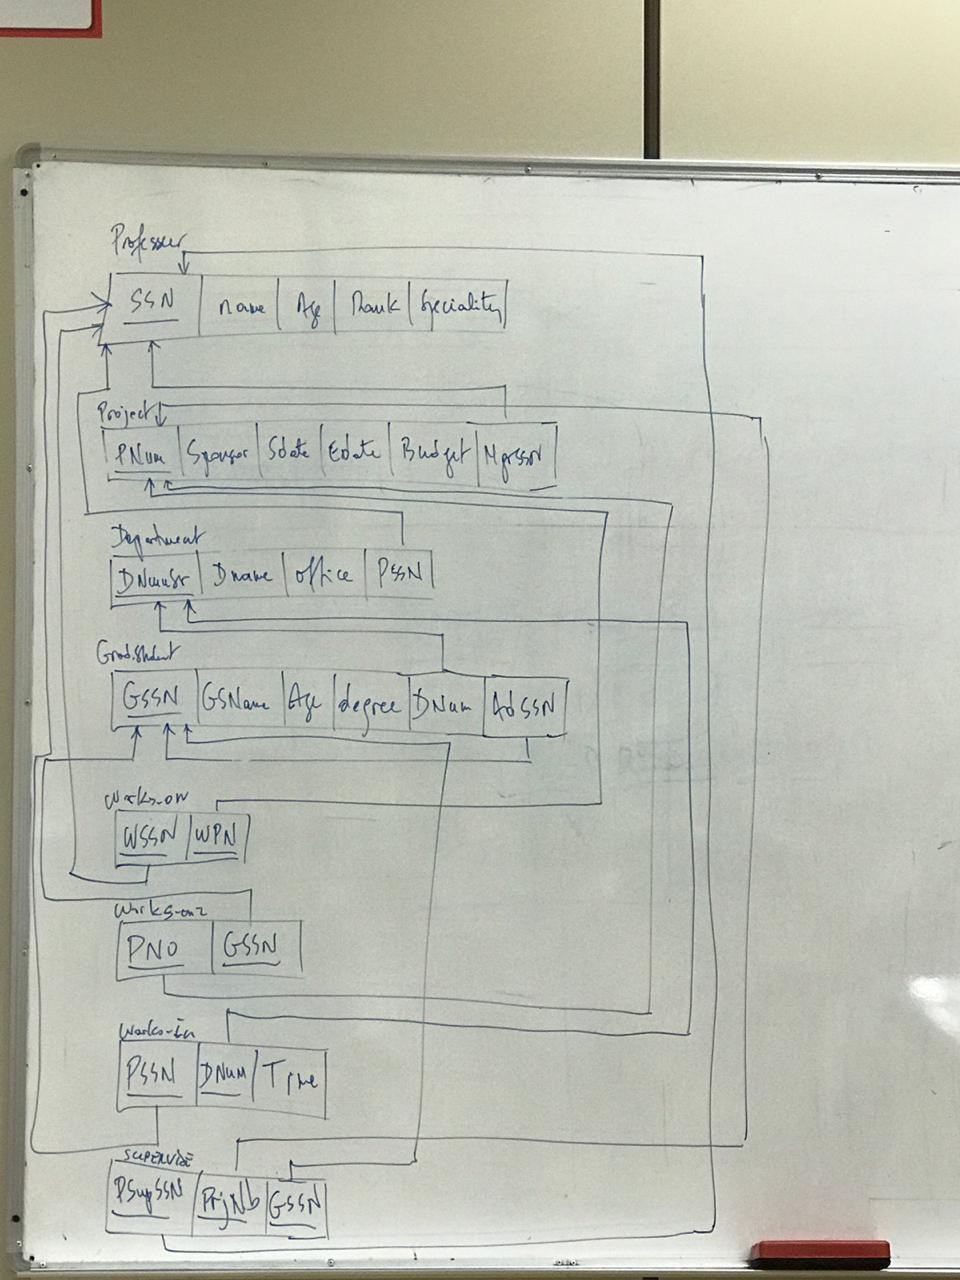 Professor
SSN name Age Rank Speciality
Project
PNum Sponsor Sdate Edate Budget MgrSSN
Department
DNumber Dname office PSSN
Grad.Student
GSSN GSName Age degree DNum AdSSN
Works-on
WSSN WPN
Works-on2
PNO GSSN
Works-in
PSSN DNum Time
SUPERVISE
PSupSSN PrjNb GSSN